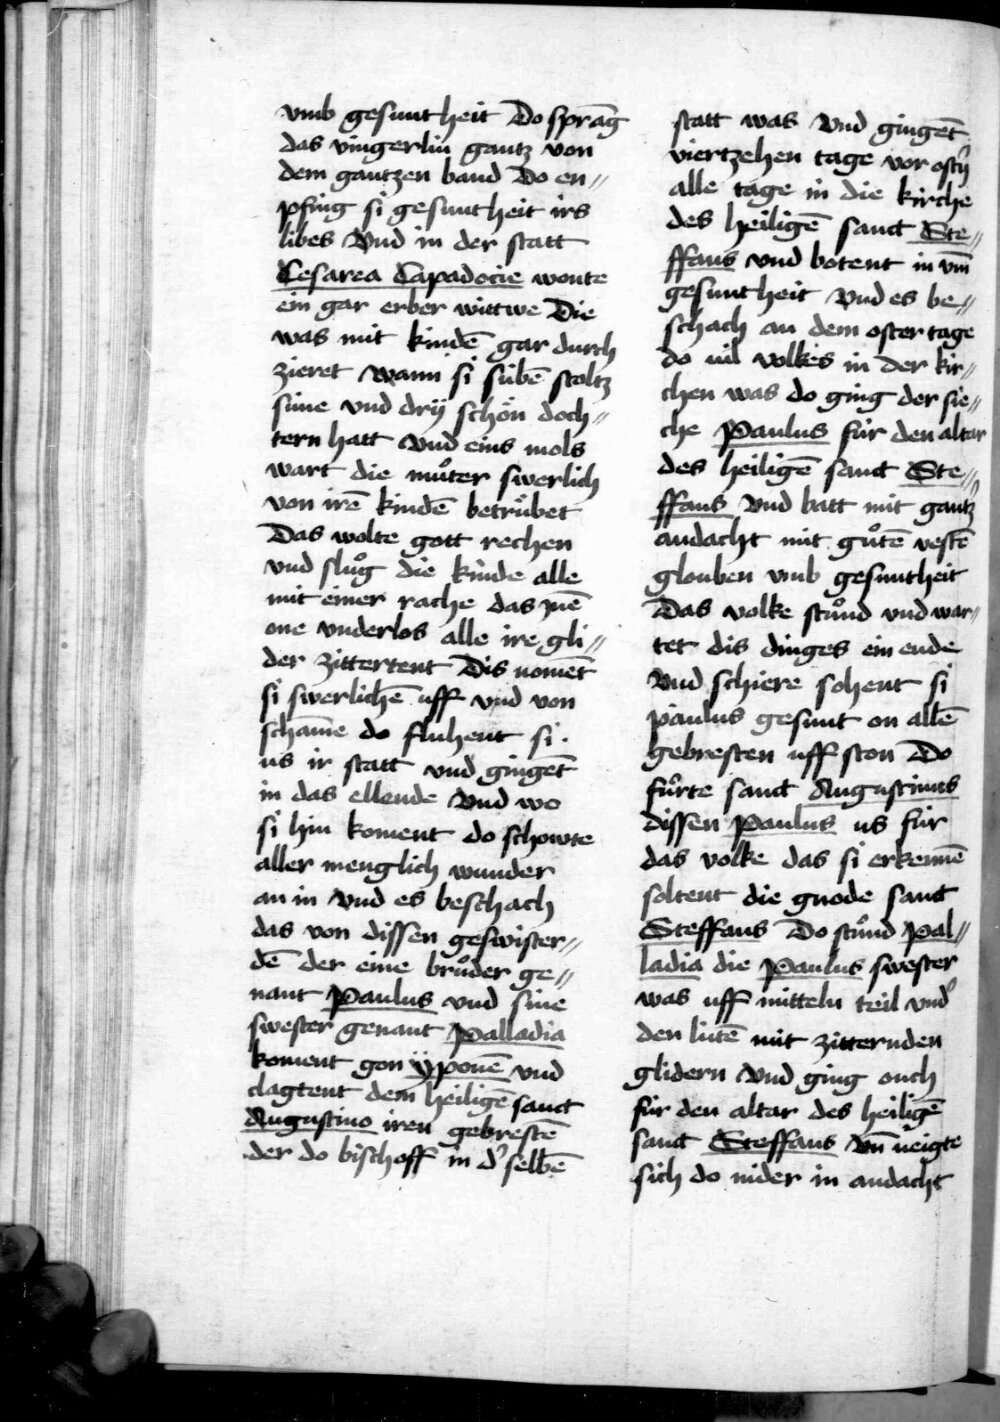 vmb gesuntheit Do sprāg
das vingerlin gantz von
dem gantzen band Do en⸗
pfing si gesuntheit irs
libes Vnd in der statt
Cesarea Capadocie wonte
ein gar erber wittwe Die
was mit kindē gar durch
zieret wann si sübē stoltz
süne vnd drÿ schön doch⸗
tern hatt Vnd eins mols
wart die můter swerlich
von irē kindē betrübet
Das wolte gott rechen
vnd slůg die kinde alle
mit einer rache das inē
one vnderlos alle ire gli⸗
der zittertent Dis nomēt
si swerlichē uff vnd von
schāme do fluhent si
us ir statt vnd gingēt
in das ellende Vnd wo
si hin koment do schowte
aller menglich wunder
an in Vnd es beschach
das von dissen geswister⸗
dē der eine brůder ge⸗
nant Paulus vnd sine
swester genant Palladia
koment gon ÿponē vnd
clagtent dem heiligē sanct
Augustino iren gebrestē
der do bischoff in d' selbē
statt was Vnd gingēt
viertzehen tage vor ostn̄
alle tage in die kirche
des heiligē sanct Ste⸗
ffans vnd botent in vm̄
gesuntheit Vnd es be⸗
schach an dem oster tage
do vil volkes in der kir⸗
chen was do ging der sie⸗
che Paulus für den altar
des heiligē sanct Ste⸗
ffans Vnd batt mit gantz'
andacht mit gůtē vestē
glouben vmb gesuntheit
Das volke stůnd vnd war⸗
tet dis dinges ein ende
Vnd schiere sohent si
paulus gesunt on allē
gebresten uff ston Do
fůrte sanct Augustinus
dissen Paulus us für
das volke das si erkennē
soltent die gnode sanct
Steffans Do stůnd Pal⸗
ladia die Paulus swester
was uff mitteln teil vnd'
den lütē mit zitternden
glidern Vnd ging ouch
für den altar des heiligē
sanct Steffans Vn̄ neigte
sich do nider in andacht